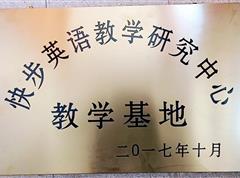 快步英语教学研究中心
教学基地
二O一七年十月